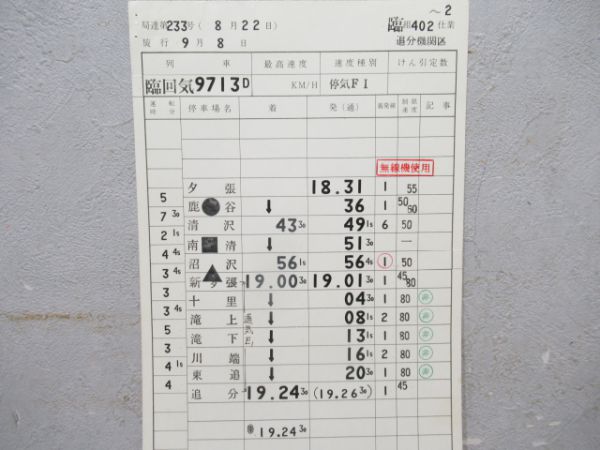 ～2
局達第233号(8月22日) 臨組402仕業
施行 9月8日 追分機関区
列車 最高速度 速度種別 けん引定数
臨回気9713D KM/H 停気F1
運転時分 停車場名 着 発(通) 着発線 制限速度 記事
無線機使用
夕張 18.31 1 55
5
鹿谷 ↓ 36 1 50 60
7 30
清沢 43 30 49 15 6 50
2 15
南清 ↓ 51 30 一
4 45
沼沢 56 15 56 45 1 50
3 45
新夕張 19.00 30 19.01 30 1 45 80
3
十里 ↓ 04 30 1 80
3 45
滝上 ↓ 08 15 2 80
5
滝下 ↓ 13 15 1 80
3
川端 ↓ 16 15 2 80
4 15
東追 ↓ 20 30 1 80
4
追分 19.24 30 (19.26 30) 1 45
19.24 30